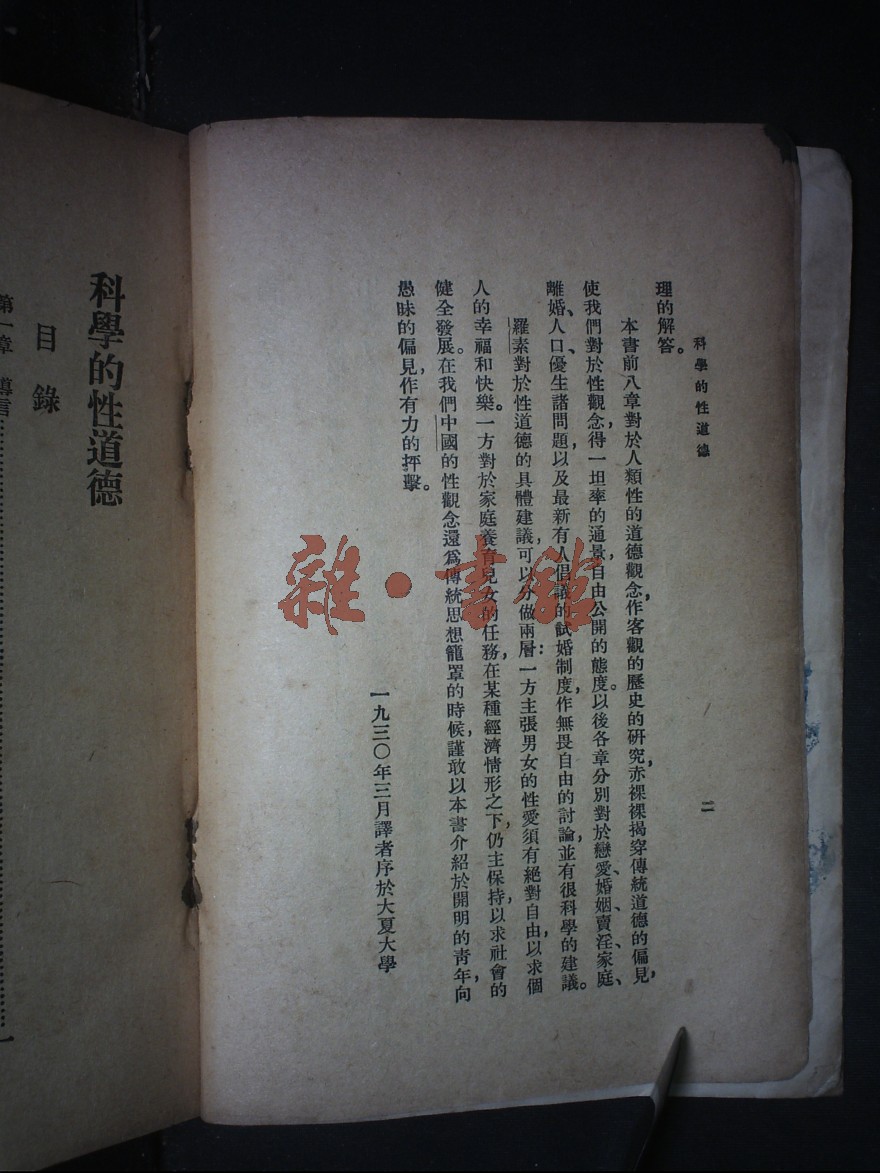 科學的性道德
二
理的解答。
本書前八章對於人類性的道德觀念，作客觀的歷史的研究，赤裸裸揭穿傳統道德的偏見，
使我們對於性觀念，得一坦率的通景，自由公開的態度。以後各章分別對於戀愛、婚姻、賣淫、家庭、
離婚、人口、優生諸問題，以及最新有人倡議的試婚制度，作無畏自由的討論，並有很科學的建議。
羅素對於性道德的具體建議，可以分做兩層：一方主張男女的性愛須有絕對自由，以求個
人的幸福和快樂。一方對於家庭養育兒女的任務，在某種經濟情形之下，仍主保持，以求社會的
健全發展。在我們中國的性觀念還爲傳統思想籠罩的時候，謹敢以本書介紹於開明的青年，向
愚昧的偏見，作有力的抨擊。
一九三〇年三月譯者序於大夏大學
科學的性道德
目錄
第一章 導言……一
雜·書館